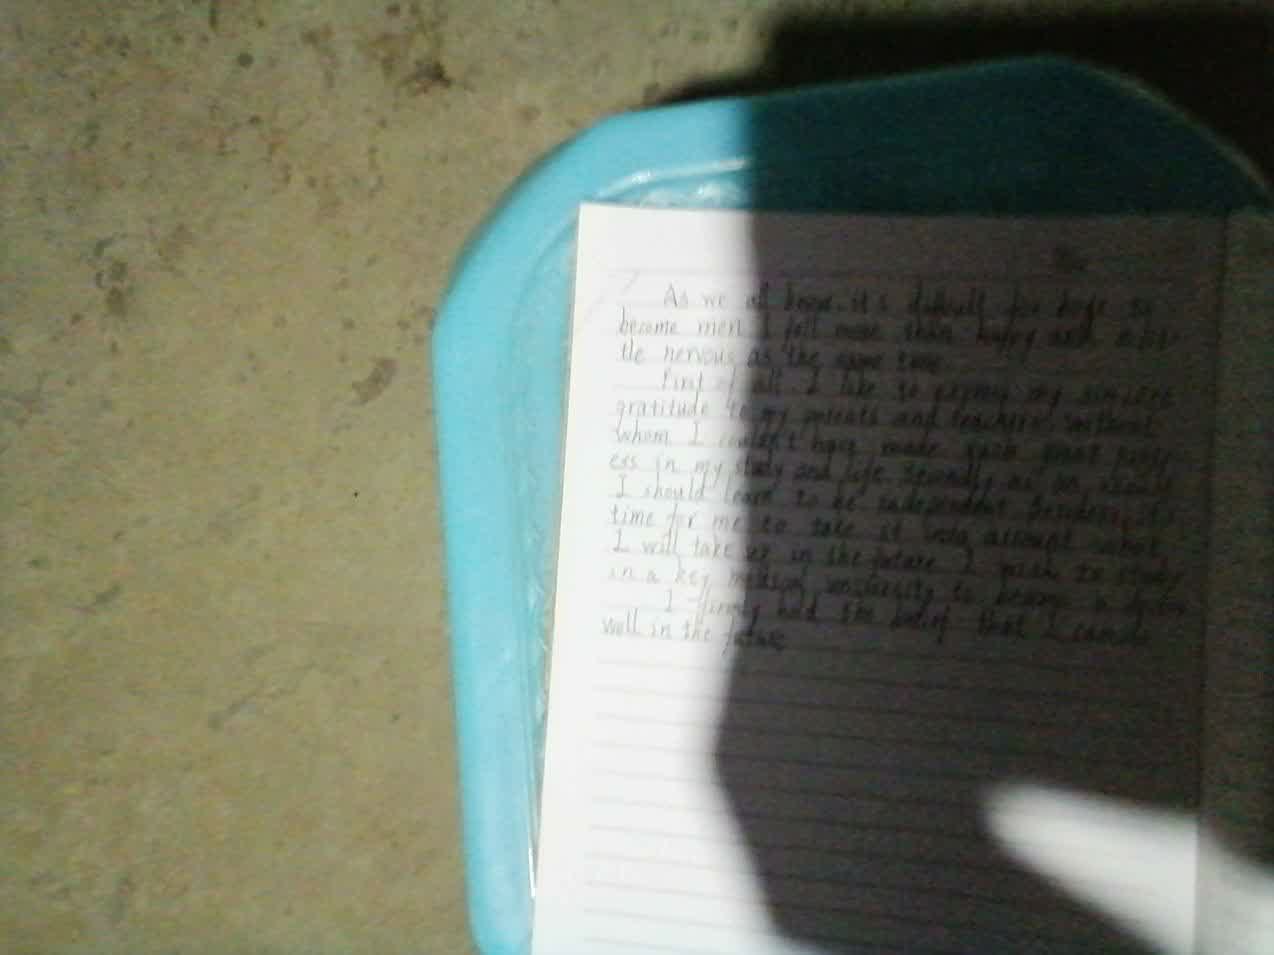 As we all know, it's difficult for boys to
become men. I fell more than happy and a lit-
tle nervous as the same time.
First of all I like to express my sincere
gratitude to my parents and teachers, without
whom I couldn't have made such great
ess in my study and life. Secondly as an adult
I should learn to be independent. Besides, it's
time for me to take it into account what
I will take up in the future. I wish to study
in a key medical university to become a
I firmly hold the belief that I can do
well in the future